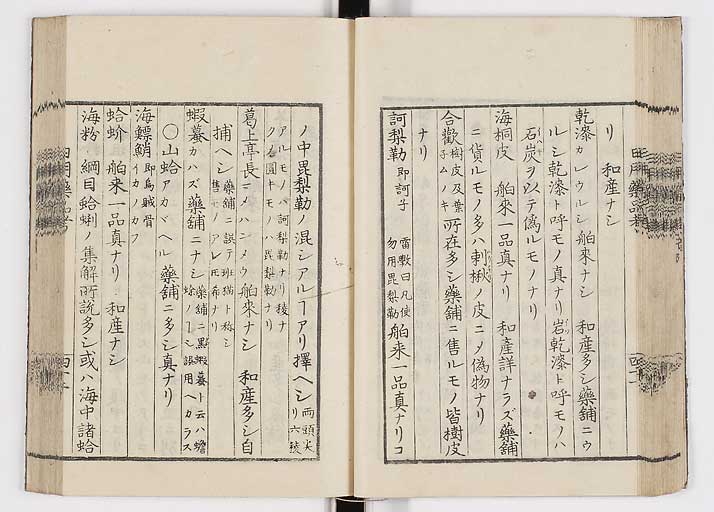 リ　和産ナシ
乾漆カレウルシ舶來ナシ　和産多シ藥舗ニウ
ルシ乾漆ト呼モノ真ナリ岩乾漆ト呼モノハ
石炭ヲ以テ偽ルモノナリ
海桐皮　舶來一品真ナリ　和産詳ナラズ藥舗
ニ貨ルモノ多ハ刺楸ノ皮ニメ偽物ナリ
合歡樹皮及葉子ムノキ所在多シ藥舗ニ售ルモノ皆樹皮
ナリ
訶梨勒即訶子　雷斆曰凡使勿用毘梨勒　舶來一品真ナリコ
ノ中毘梨勒ノ混シアルヿアリ擇ヘシ両頭尖リ六稜
アルモノハ訶梨勒ナリ稜ナ
ク圓キモノハ毘梨勒ナリ
葛上亭長マメハンメウ舶來ナシ　和産多シ自
捕ヘシ藥舗ニ誤テ班猫ト称シ售モノアレ𪜈希ナリ
蝦蟇カハズ藥舗ニナシ藥舗ニ黒蝦蟇ト云ハ蟾蜍ノヿナリ誤用ヘカラス
〇山蛤アカガヘル藥舗ニ多シ真ナリ
海鰾鮹即烏賊骨イカノカフ
蛤蚧　舶來一品真ナリ　和産ナシ
海粉　綱目蛤蜊ノ集解所說多シ或ハ海中諸蛤